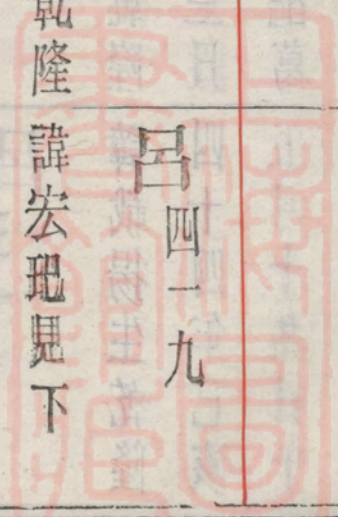 呂四一九
乾隆諱宏玘見下